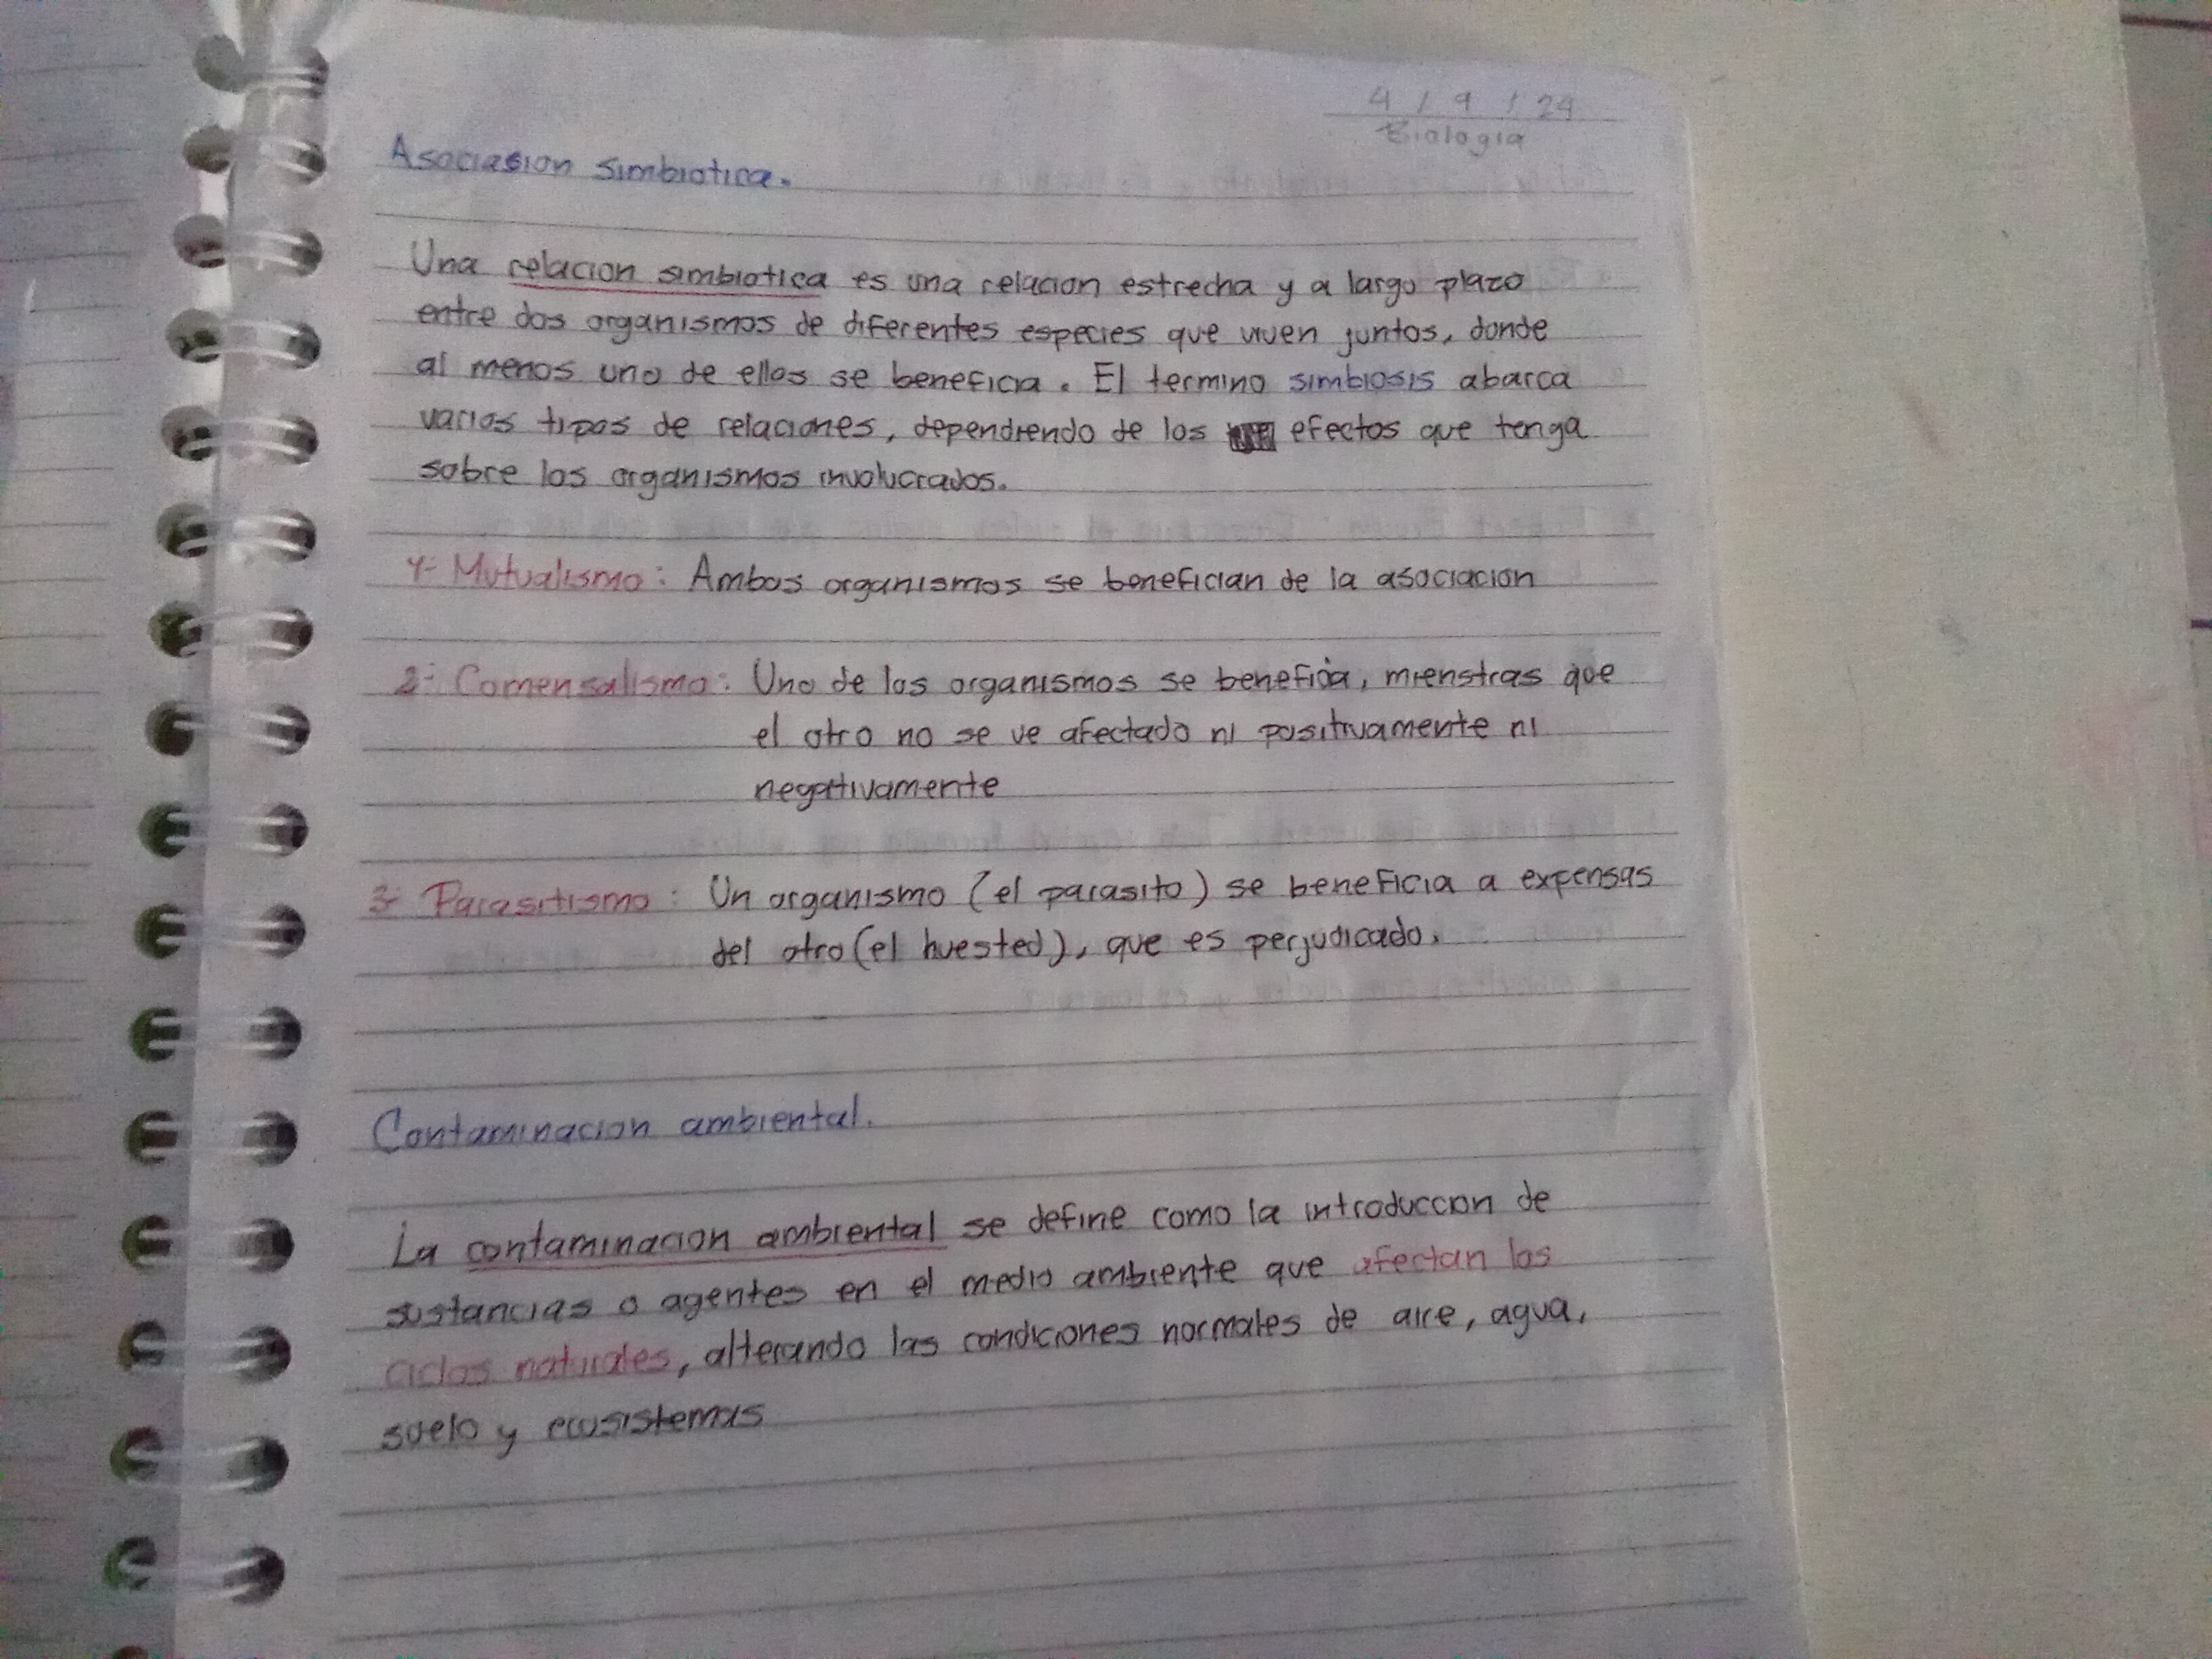 4 / 9 / 24
Biologia
Asociasion simbiotica.
Una relacion simbiotica es una relacion estrecha y a largo plazo
entre dos organismos de diferentes especies que viven juntos, donde
al menos uno de ellos se beneficia. El termino simbiosis abarca
varios tipos de relaciones, dependiendo de los efectos que tenga
sobre los organismos involucrados.
1- Mutualismo: Ambos organismos se benefician de la asociacion
2- Comensalismo: Uno de los organismos se beneficia, mienstras que
el otro no se ve afectado ni positivamente ni
negativamente
3- Parasitismo: Un organismo (el parasito) se beneficia a expensas
del otro (el huested), que es perjudicado.
Contaminacion ambiental.
La contaminacion ambiental se define como la introduccion de
sustancias o agentes en el medio ambiente que afectan los
ciclos naturales, alterando las condiciones normales de aire, agua,
suelo y ecosistemas